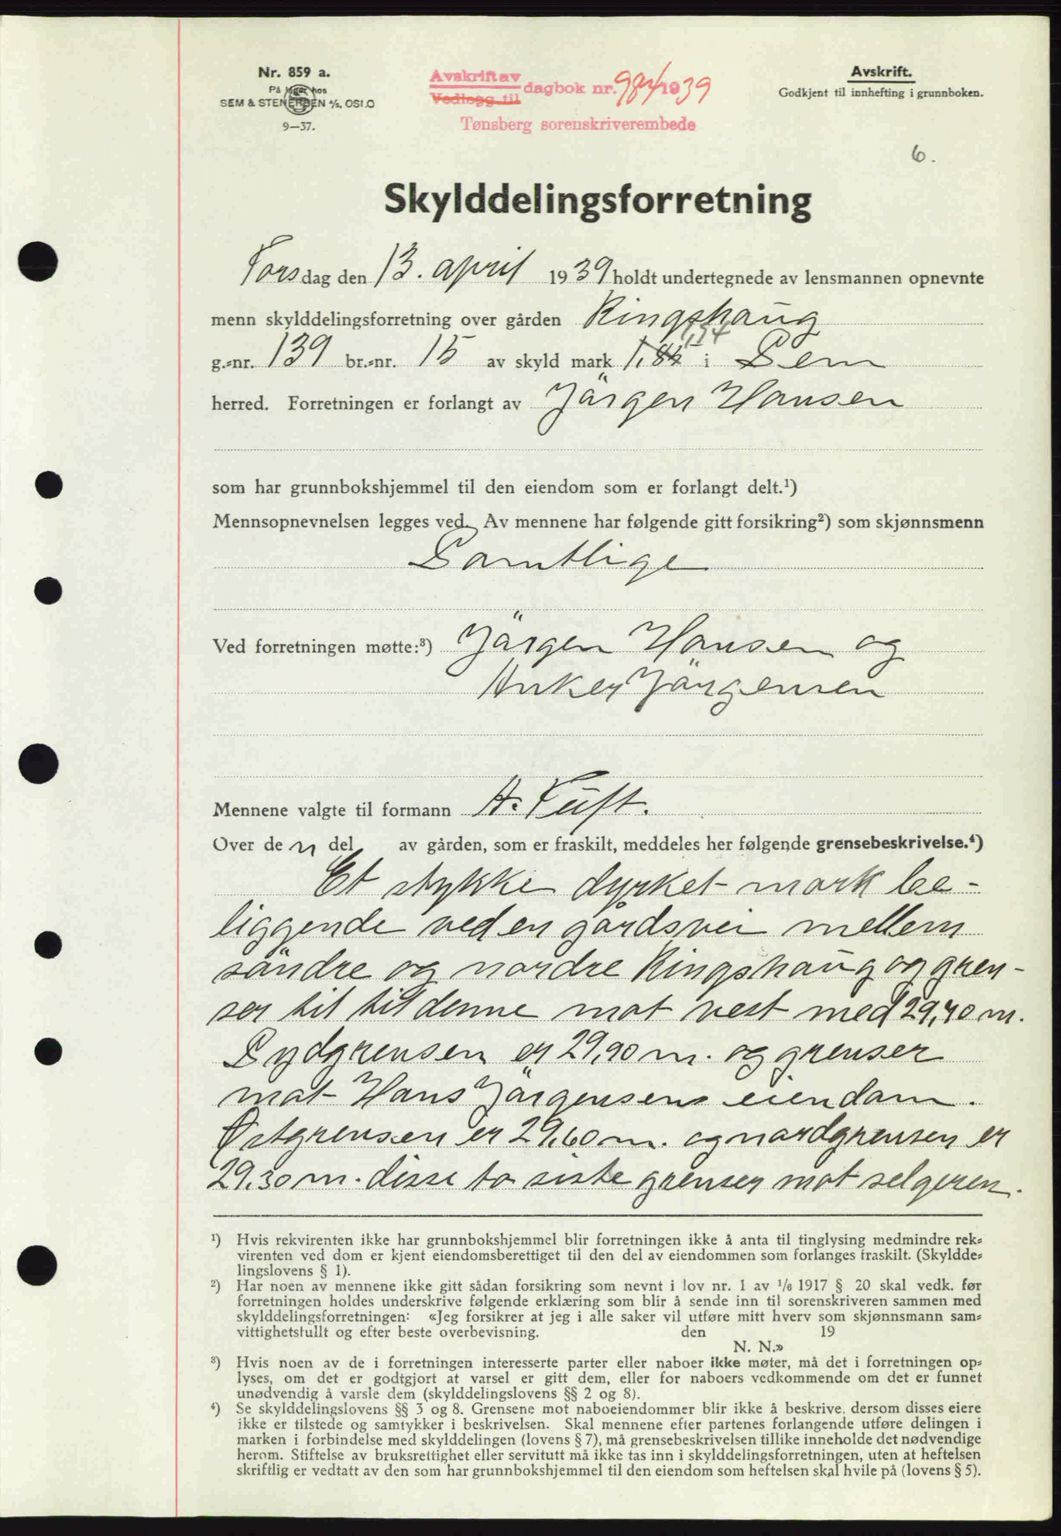 Nr. 859 a.
På lager hos
SEM & STENERSEN A/S, OSLO
9—37.
Avskrift av
Vedlegg til
dagbok nr. 984/1939
Tønsberg sorenskriverembede
Avskrift.
Godkjent til innhefting i grunnboken.
6.
Skylddelingsforretning
Torsdag den 13. april 1939 holdt undertegnede av lensmannen opnevnte
menn skylddelingsforretning over gården Ringshaug
1,74
g.-nr. 139 br.-nr. 15 av skyld mark 1,85 i Sem
herred. Forretningen er forlangt av Jörgen Hansen
som har grunnbokshjemmel til den eiendom som er forlangt delt.¹)
Mennsopnevnelsen legges ved. Av mennene har følgende gitt forsikring²) som skjønnsmenn
Samtlige
Ved forretningen møtte:³) Jörgen Hansen og
Anker Jörgensen
Mennene valgte til formann A. Tuft.
Over den del av gården, som er fraskilt, meddeles her følgende grensebeskrivelse.⁴)
Et stykke dyrket mark be-
liggende ved en gårdsvei mellem
söndre og nordre Ringshaug og gren-
ser til til denne mot vest med 29,40 m.
Sydgrensen er 29,90 m. og grenser
mot Hans Jörgensens eiendom.
Østgrensen er 29,60 m. og nordgrensen er
29,30 m. disse to siste grenser mot selgeren.
¹) Hvis rekvirenten ikke har grunnbokshjemmel blir forretningen ikke å anta til tinglysing medmindre rek-
virenten ved dom er kjent eiendomsberettiget til den del av eiendommen som forlanges fraskilt. (Skyldde-
lingslovens § 1).
²) Har noen av mennene ikke gitt sådan forsikring som nevnt i lov nr. 1 av 1/6 1917 § 20 skal vedk. før
forretningen holdes underskrive følgende erklæring som blir å sende inn til sorenskriveren sammen med
skylddelingsforretningen: «Jeg forsikrer at jeg i alle saker vil utføre mitt hverv som skjønnsmann sam-
vittighetsfullt og efter beste overbevisning. den 19
N. N.»
³) Hvis noen av de i forretningen interesserte parter eller naboer ikke møter, må det i forretningen op-
lyses, om det er godtgjort at varsel er gitt dem, eller for naboers vedkommende om det er funnet
unødvendig å varsle dem (skylddelingslovens §§ 2 og 8).
⁴) Se skylddelingslovens §§ 3 og 8. Grensene mot naboeiendommer blir ikke å beskrive, dersom disses eiere
ikke er tilstede og samtykker i beskrivelsen. Skal mennene efter partenes forlangende utføre delingen i
marken i forbindelse med skylddelingen (lovens § 7), må grensebeskrivelsen tillike inneholde det nødvendige
herom. Stiftelse av bruksrettighet eller servitutt må ikke tas inn i skylddelingsforretningen, uten at heftelsen
skriftlig er vedtatt av den som har grunnbokshjemmel til den eiendom som heftelsen skal hvile på (lovens § 5).